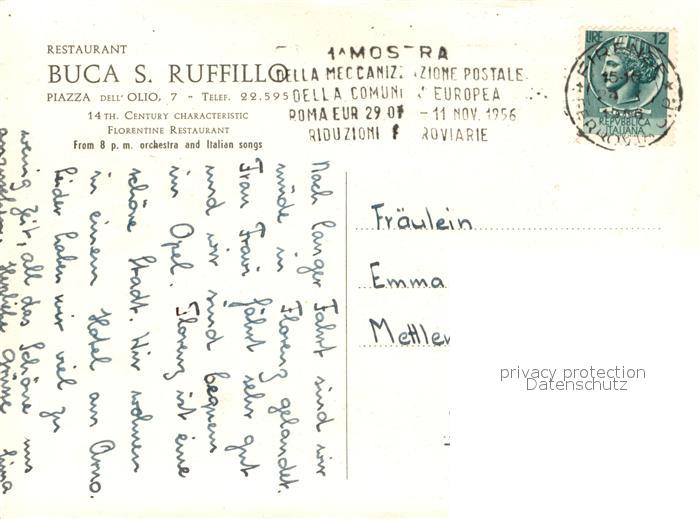 RESTAURANT
BUCA S. RUFFILLO
PIAZZA DELL'OLIO, 7 - TELEF. 22.595
14TH. CENTURY CHARACTERISTIC
FLORENTINE RESTAURANT
From 8 p. m. orchestra and Italian songs
1ª MOSTRA
DELLA MECCANIZZAZIONE POSTALE
DELLA COMUNI EUROPEA
ROMA EUR 29 - 11 NOV. 1956
RIDUZIONI F ROVIARIE
LIRE 12
REPVBBLICA
ITALIANA
FIRENZE
15-16
1956
FERROVIA
Nach langer Fahrt sind wir
müde in Florenz gelandet.
Frau Frau fährt sehr gut
und wir sind bequem
im Opel. Florenz ist eine
schöne Stadt. Wir wohnen
in einem Hotel am Arno.
Leider haben wir viel zu
wenig Zeit, all das Schöne uns
anzusehen. Herzliche Grüsse
Fräulein
Emma
Mettler
privacy protection
Datenschutz